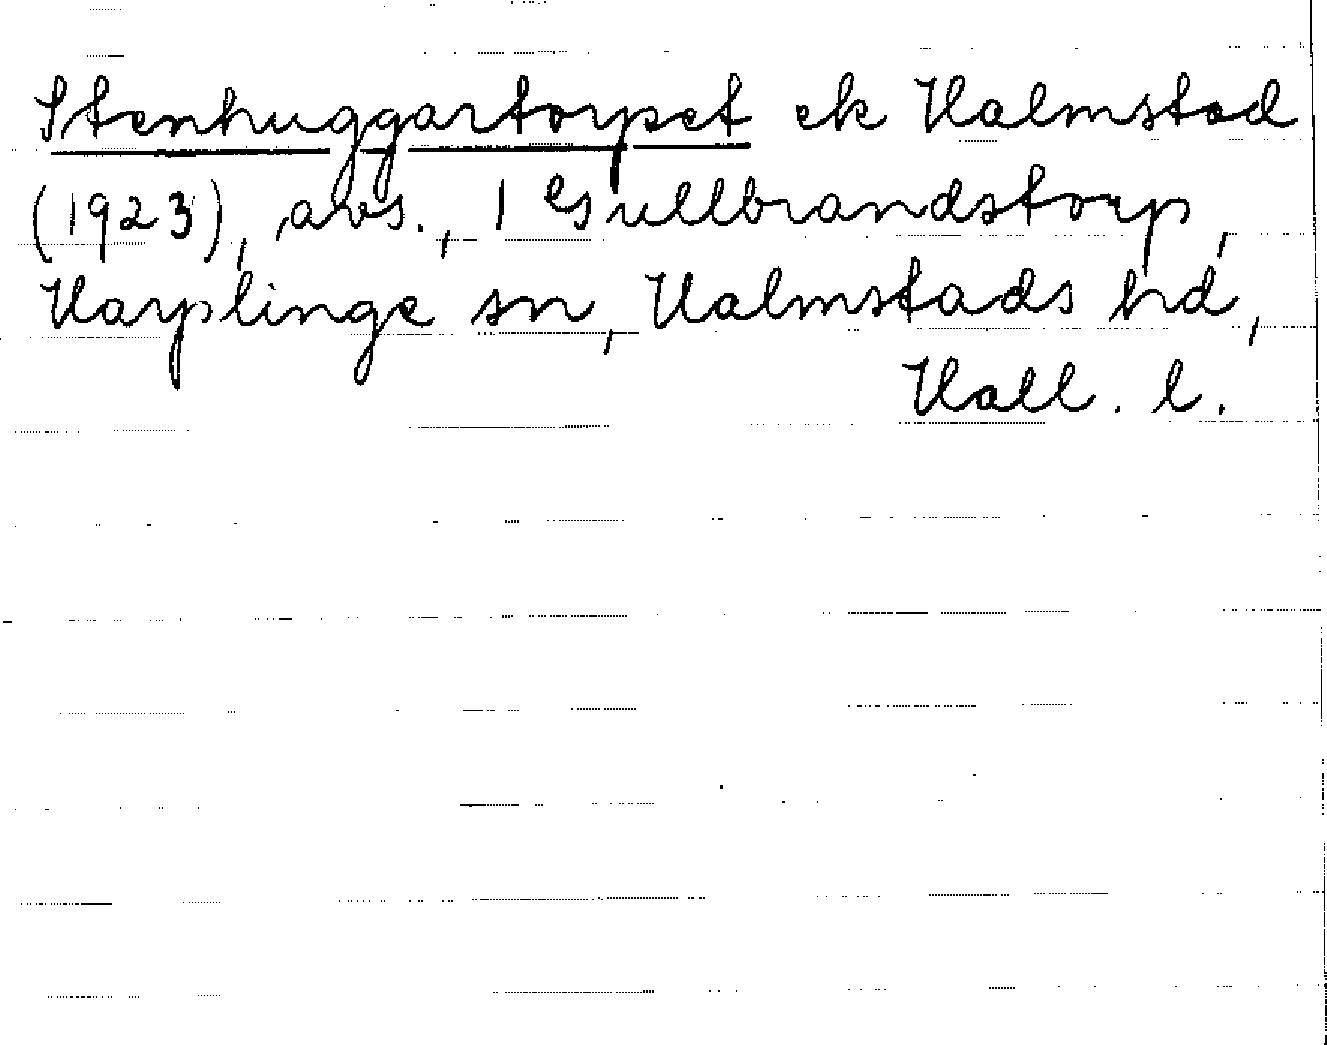 Stenhuggartorpet ek Halmstad
(1923), avs., 1 Gullbrandstorp,
Harplinge sn, Halmstads hd,
Hall. l.